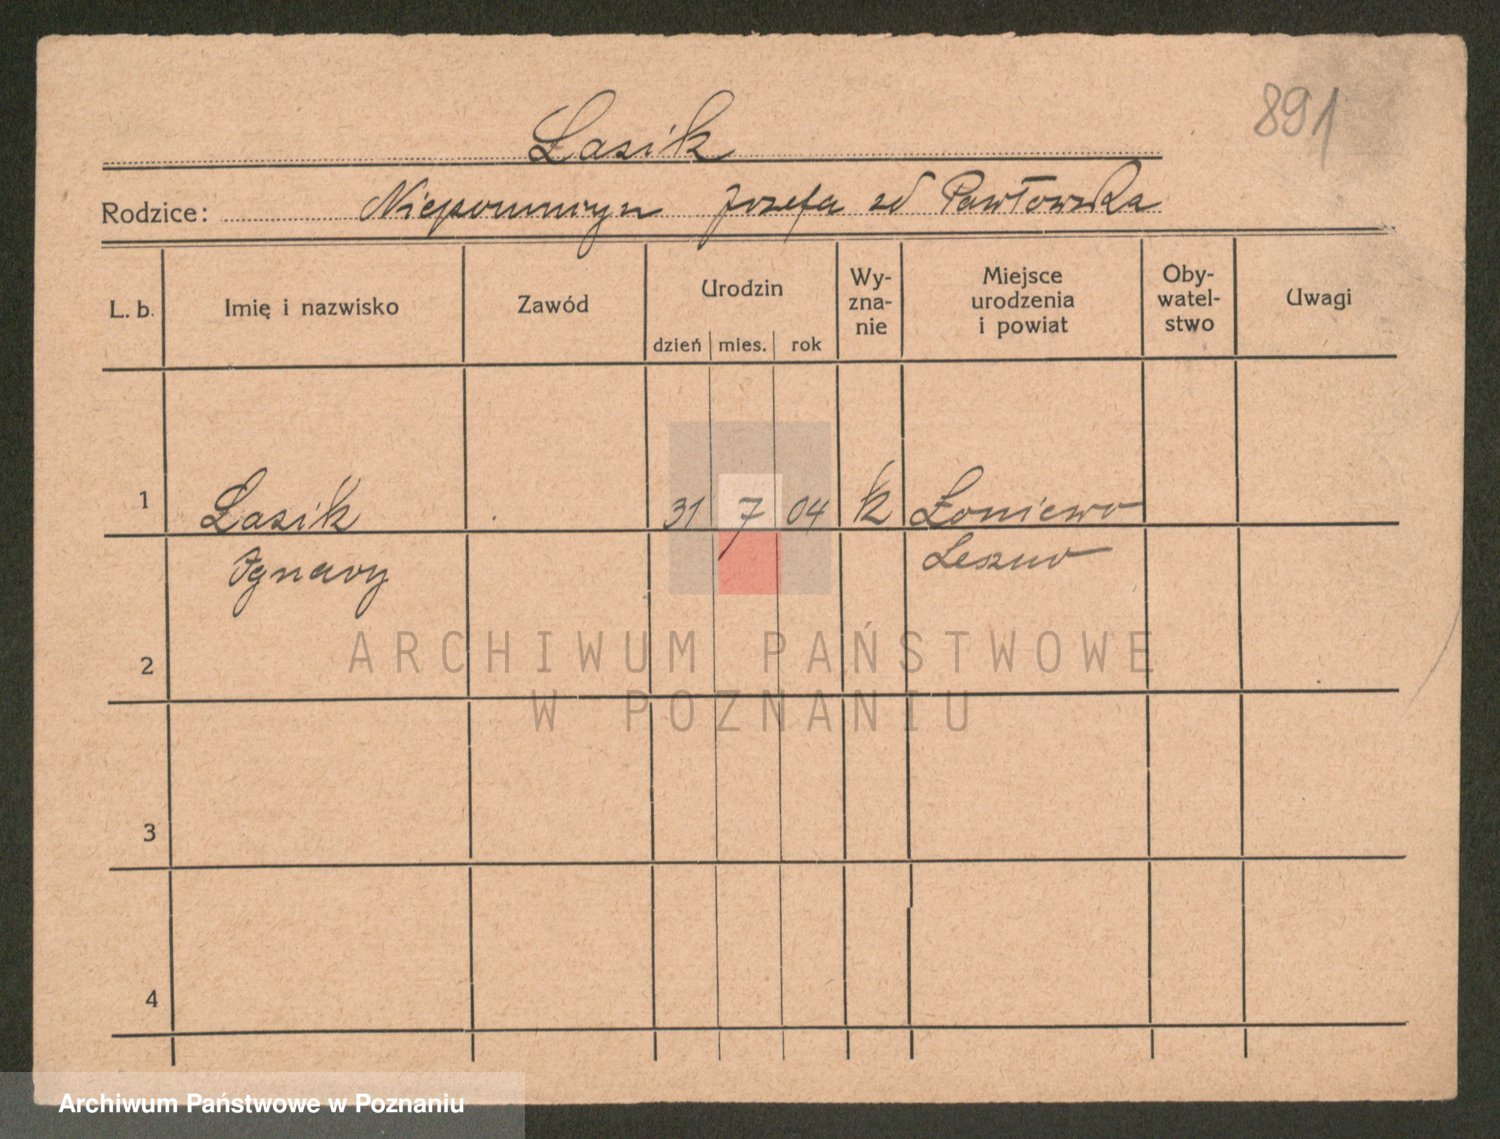 891
Łasik
Rodzice: Niepomucyn Jozefa zd Pawłowska
L. b. Imię i nazwisko Zawód Urodzin dzień mies. rok Wy-zna-nie Miejsce urodzenia i powiat Oby-watel-stwo Uwagi
1 Łasik 31 7 04 k Łoniewo
Ignacy Leszno
2
3
4
ARCHIWUM PAŃSTWOWE
W POZNANIU
Archiwum Państwowe w Poznaniu